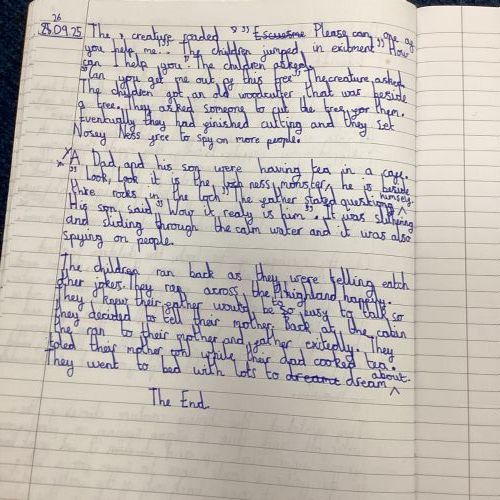 26
25.09.25 The, creature roaded "" Escuesme Please can one of
you help me.." The children jumped in exitment" How
can I help you". The children asked,
"Can you get me out of this tree" The creature asked.
The children got an old woodcutter that was beside
a tree. They asked someone to cut the tree for them.
Eventually they had finished cutting and they set
Nosey Ness free to spy on more people.
A Dad, and his son were having tea in a cafe.
" Look, Look it is the loch ness monster, he is beside
thre rocks in the loch" The father stated questioning himself.
His son said " Wow it really is him". It was slithering
and sliding through the calm water and it was also
spying on people.
The children ran back as they were telling eatch
other jokes. They ran across the highland happily.
They knew their father would be so busy to talk so
they decided to tell their mother. Back at the cabin
the ran to their mother and father exitedly. They
toled their mother while their dad cooked tea.
They went to bed with lots to dreamt dream about.
The End.